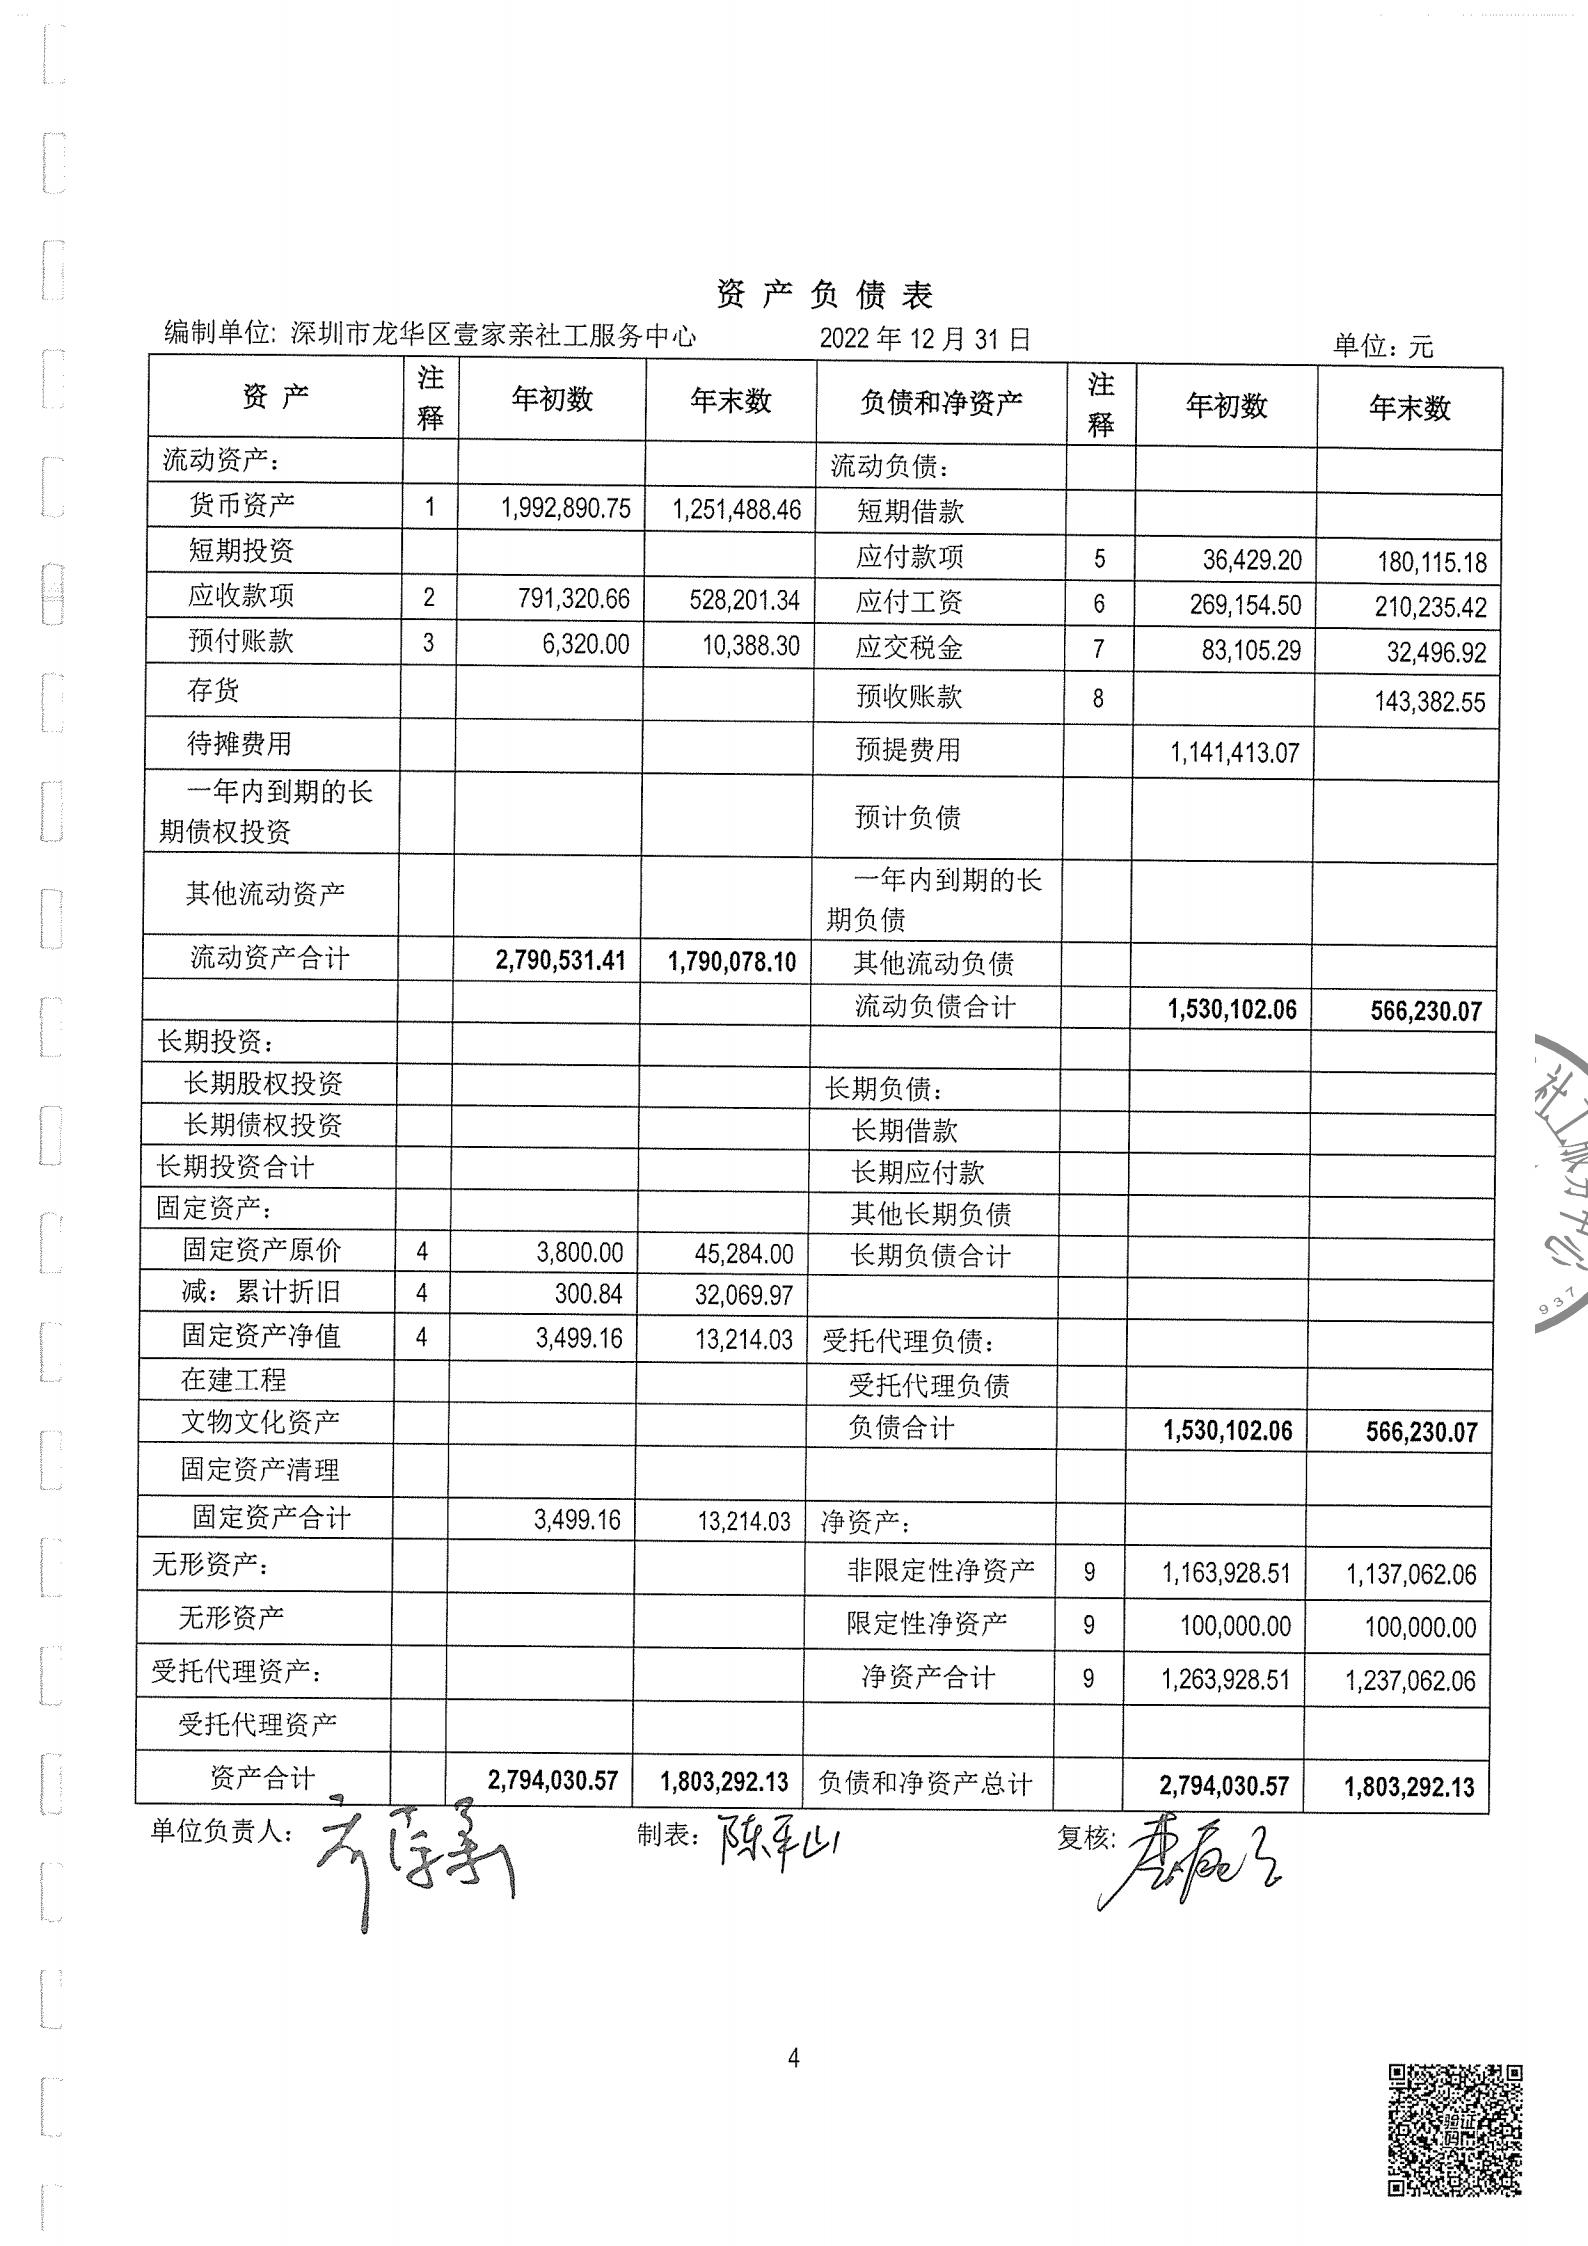 资产负债表
编制单位: 深圳市龙华区壹家亲社工服务中心 2022年12月31日 单位: 元
资 产 注释 年初数 年末数 负债和净资产 注释 年初数 年末数
流动资产: 流动负债:
货币资产 1 1,992,890.75 1,251,488.46 短期借款
短期投资 应付款项 5 36,429.20 180,115.18
应收款项 2 791,320.66 528,201.34 应付工资 6 269,154.50 210,235.42
预付账款 3 6,320.00 10,388.30 应交税金 7 83,105.29 32,496.92
存货 预收账款 8 143,382.55
待摊费用 预提费用 1,141,413.07
一年内到期的长
期债权投资 预计负债
其他流动资产 一年内到期的长
期负债
流动资产合计 2,790,531.41 1,790,078.10 其他流动负债
流动负债合计 1,530,102.06 566,230.07
长期投资:
长期股权投资 长期负债:
长期债权投资 长期借款
长期投资合计 长期应付款
固定资产: 其他长期负债
固定资产原价 4 3,800.00 45,284.00 长期负债合计
减: 累计折旧 4 300.84 32,069.97
固定资产净值 4 3,499.16 13,214.03 受托代理负债:
在建工程 受托代理负债
文物文化资产 负债合计 1,530,102.06 566,230.07
固定资产清理
固定资产合计 3,499.16 13,214.03 净资产:
无形资产: 非限定性净资产 9 1,163,928.51 1,137,062.06
无形资产 限定性净资产 9 100,000.00 100,000.00
受托代理资产: 净资产合计 9 1,263,928.51 1,237,062.06
受托代理资产
资产合计 2,794,030.57 1,803,292.13 负债和净资产总计 2,794,030.57 1,803,292.13
单位负责人: 制表: 陈平山 复核:
4
验证
码
社工服务中心
937